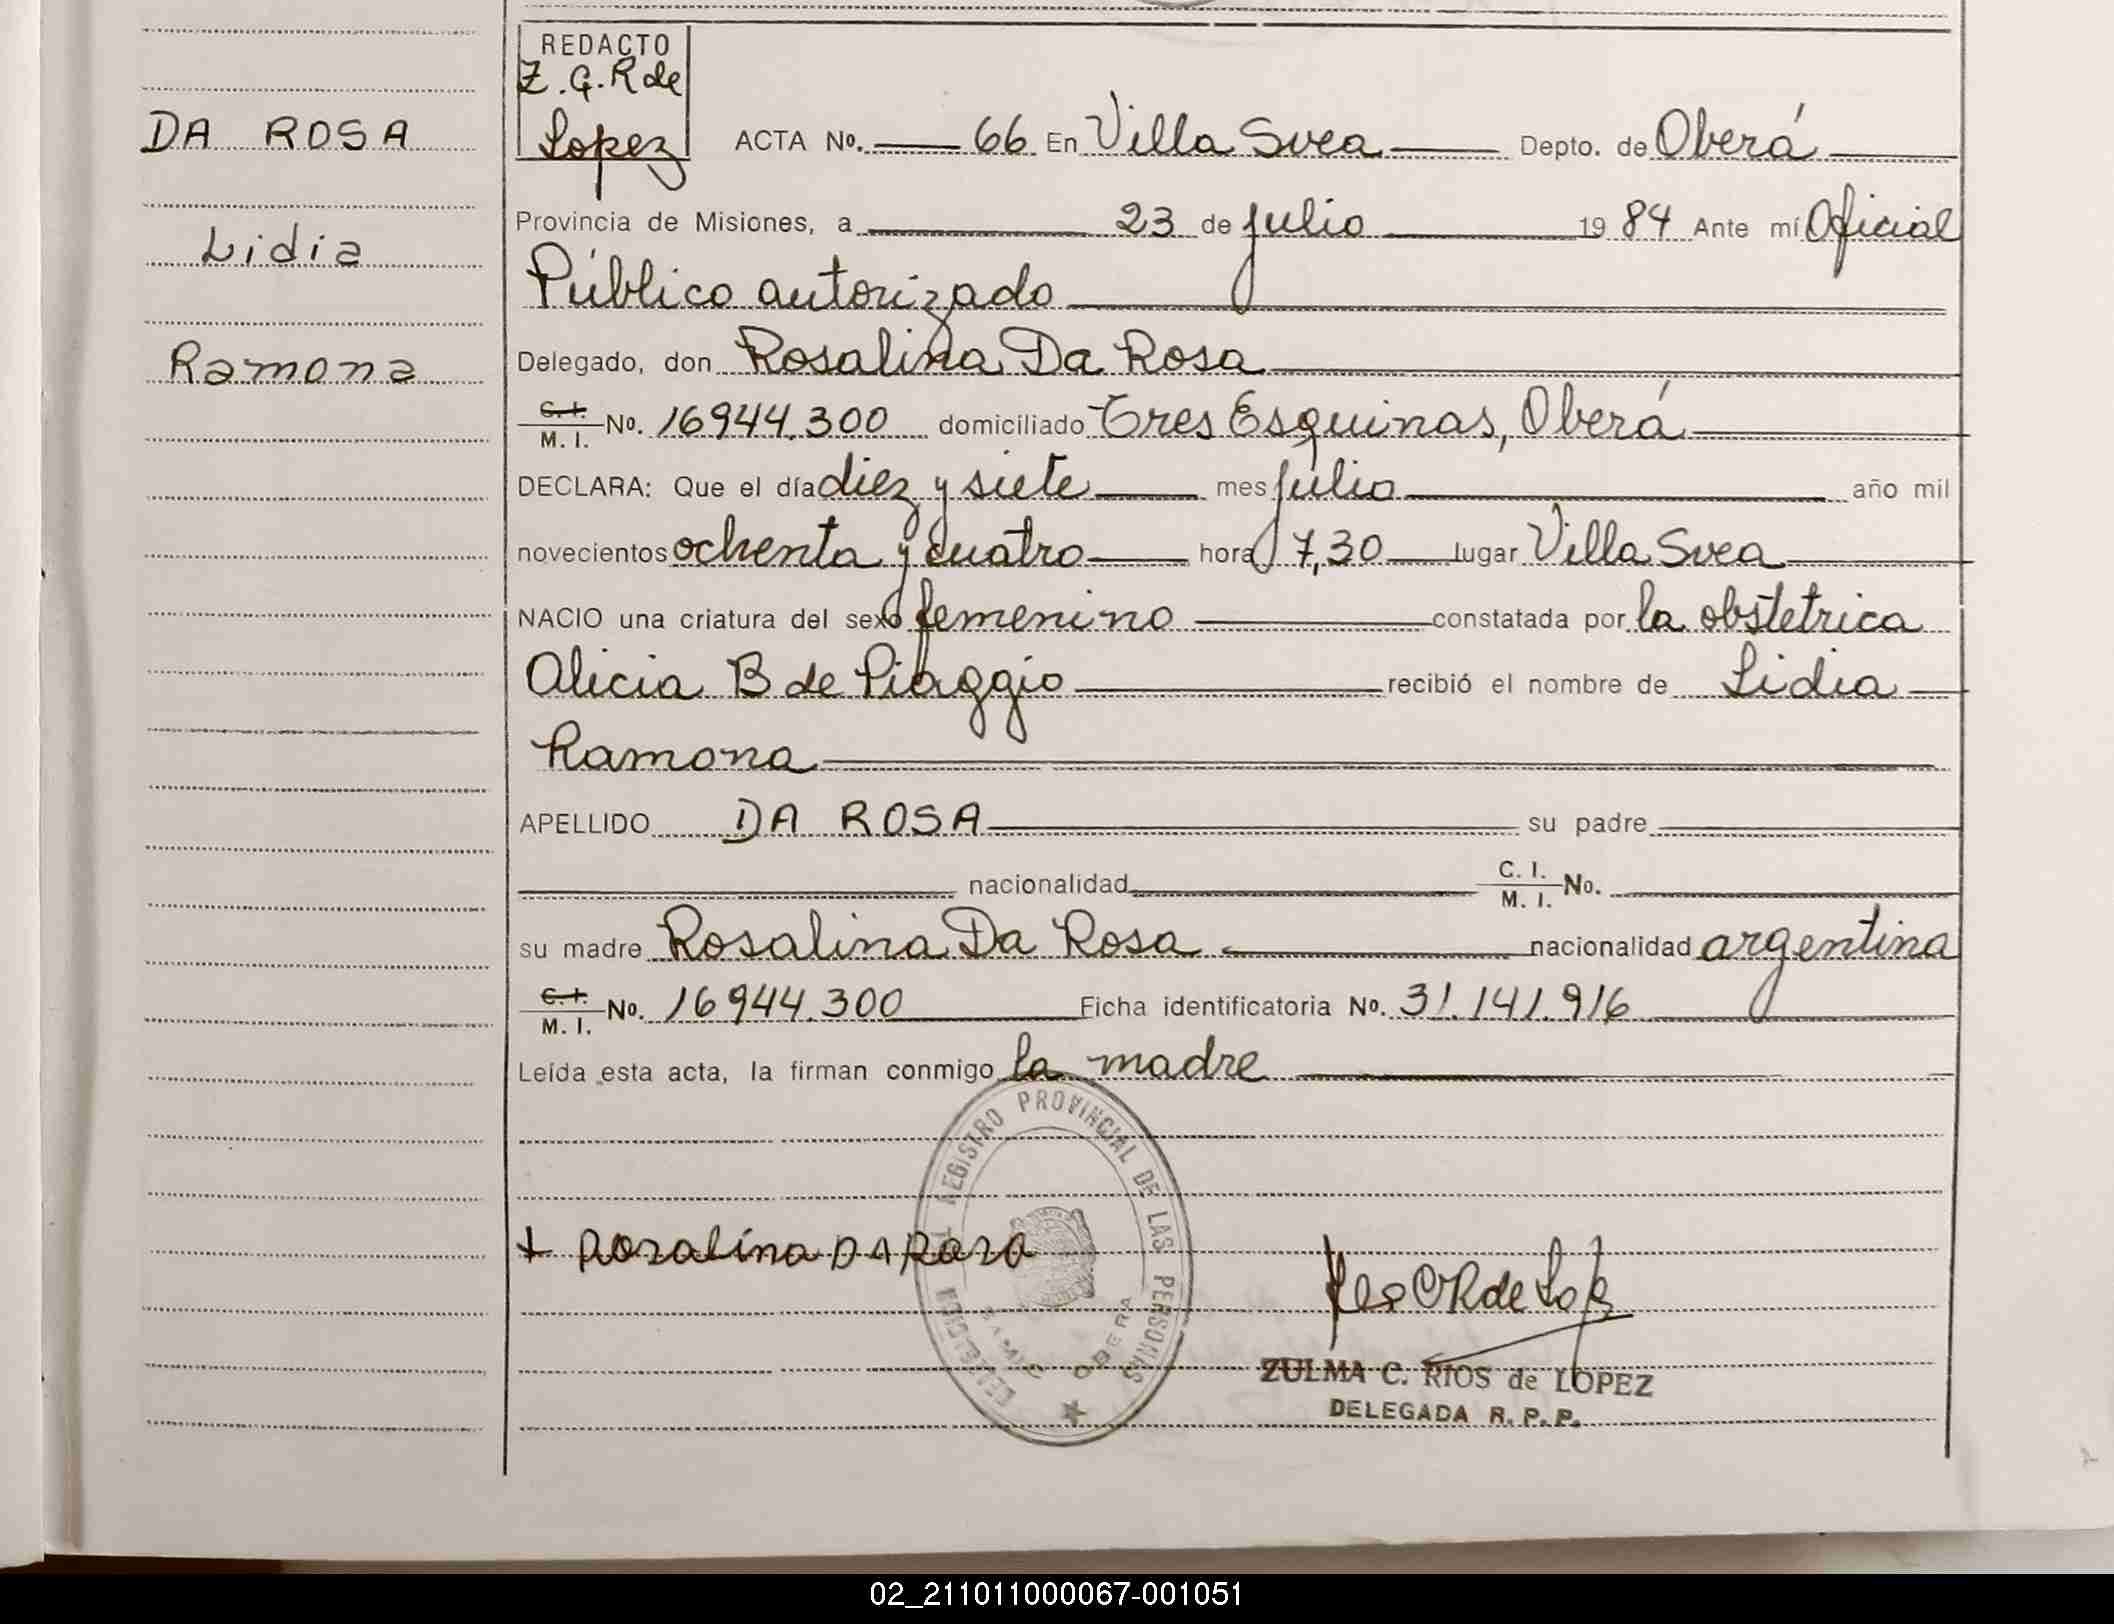 REDACTO
Z. G. R de
Lopez
DA ROSA
Lidia
Ramona
ACTA No. 66 En Villa Svea Depto. de Oberá
Provincia de Misiones, a 23 de julio 1984 Ante mí Oficial
Público autorizado
Delegado, don Rosalina Da Rosa
C. I. / M. I. No. 16944.300 domiciliado Tres Esquinas, Oberá
DECLARA: Que el día diez y siete mes julio año mil
novecientos ochenta y cuatro hora 7,30 lugar Villa Svea
NACIO una criatura del sexo femenino constatada por la obstetrica
Alicia B de Piaggio recibió el nombre de Lidia
Ramona
APELLIDO DA ROSA su padre
nacionalidad C. I. / M. I. No.
su madre Rosalina Da Rosa nacionalidad argentina
C. I. / M. I. No. 16944.300 Ficha identificatoria No. 31.141.916
Leída esta acta, la firman conmigo la madre
REGISTRO PROVINCIAL DE LAS PERSONAS
OBERA
+ Rozalina DA Roza
ZULMA C. RIOS de LOPEZ
DELEGADA R. P. P.
02_211011000067-001051